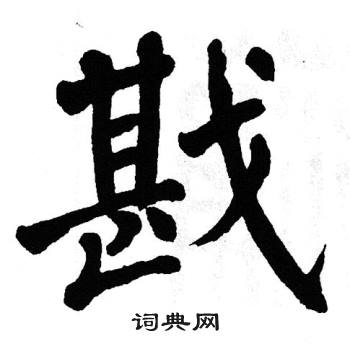 戡
词典网